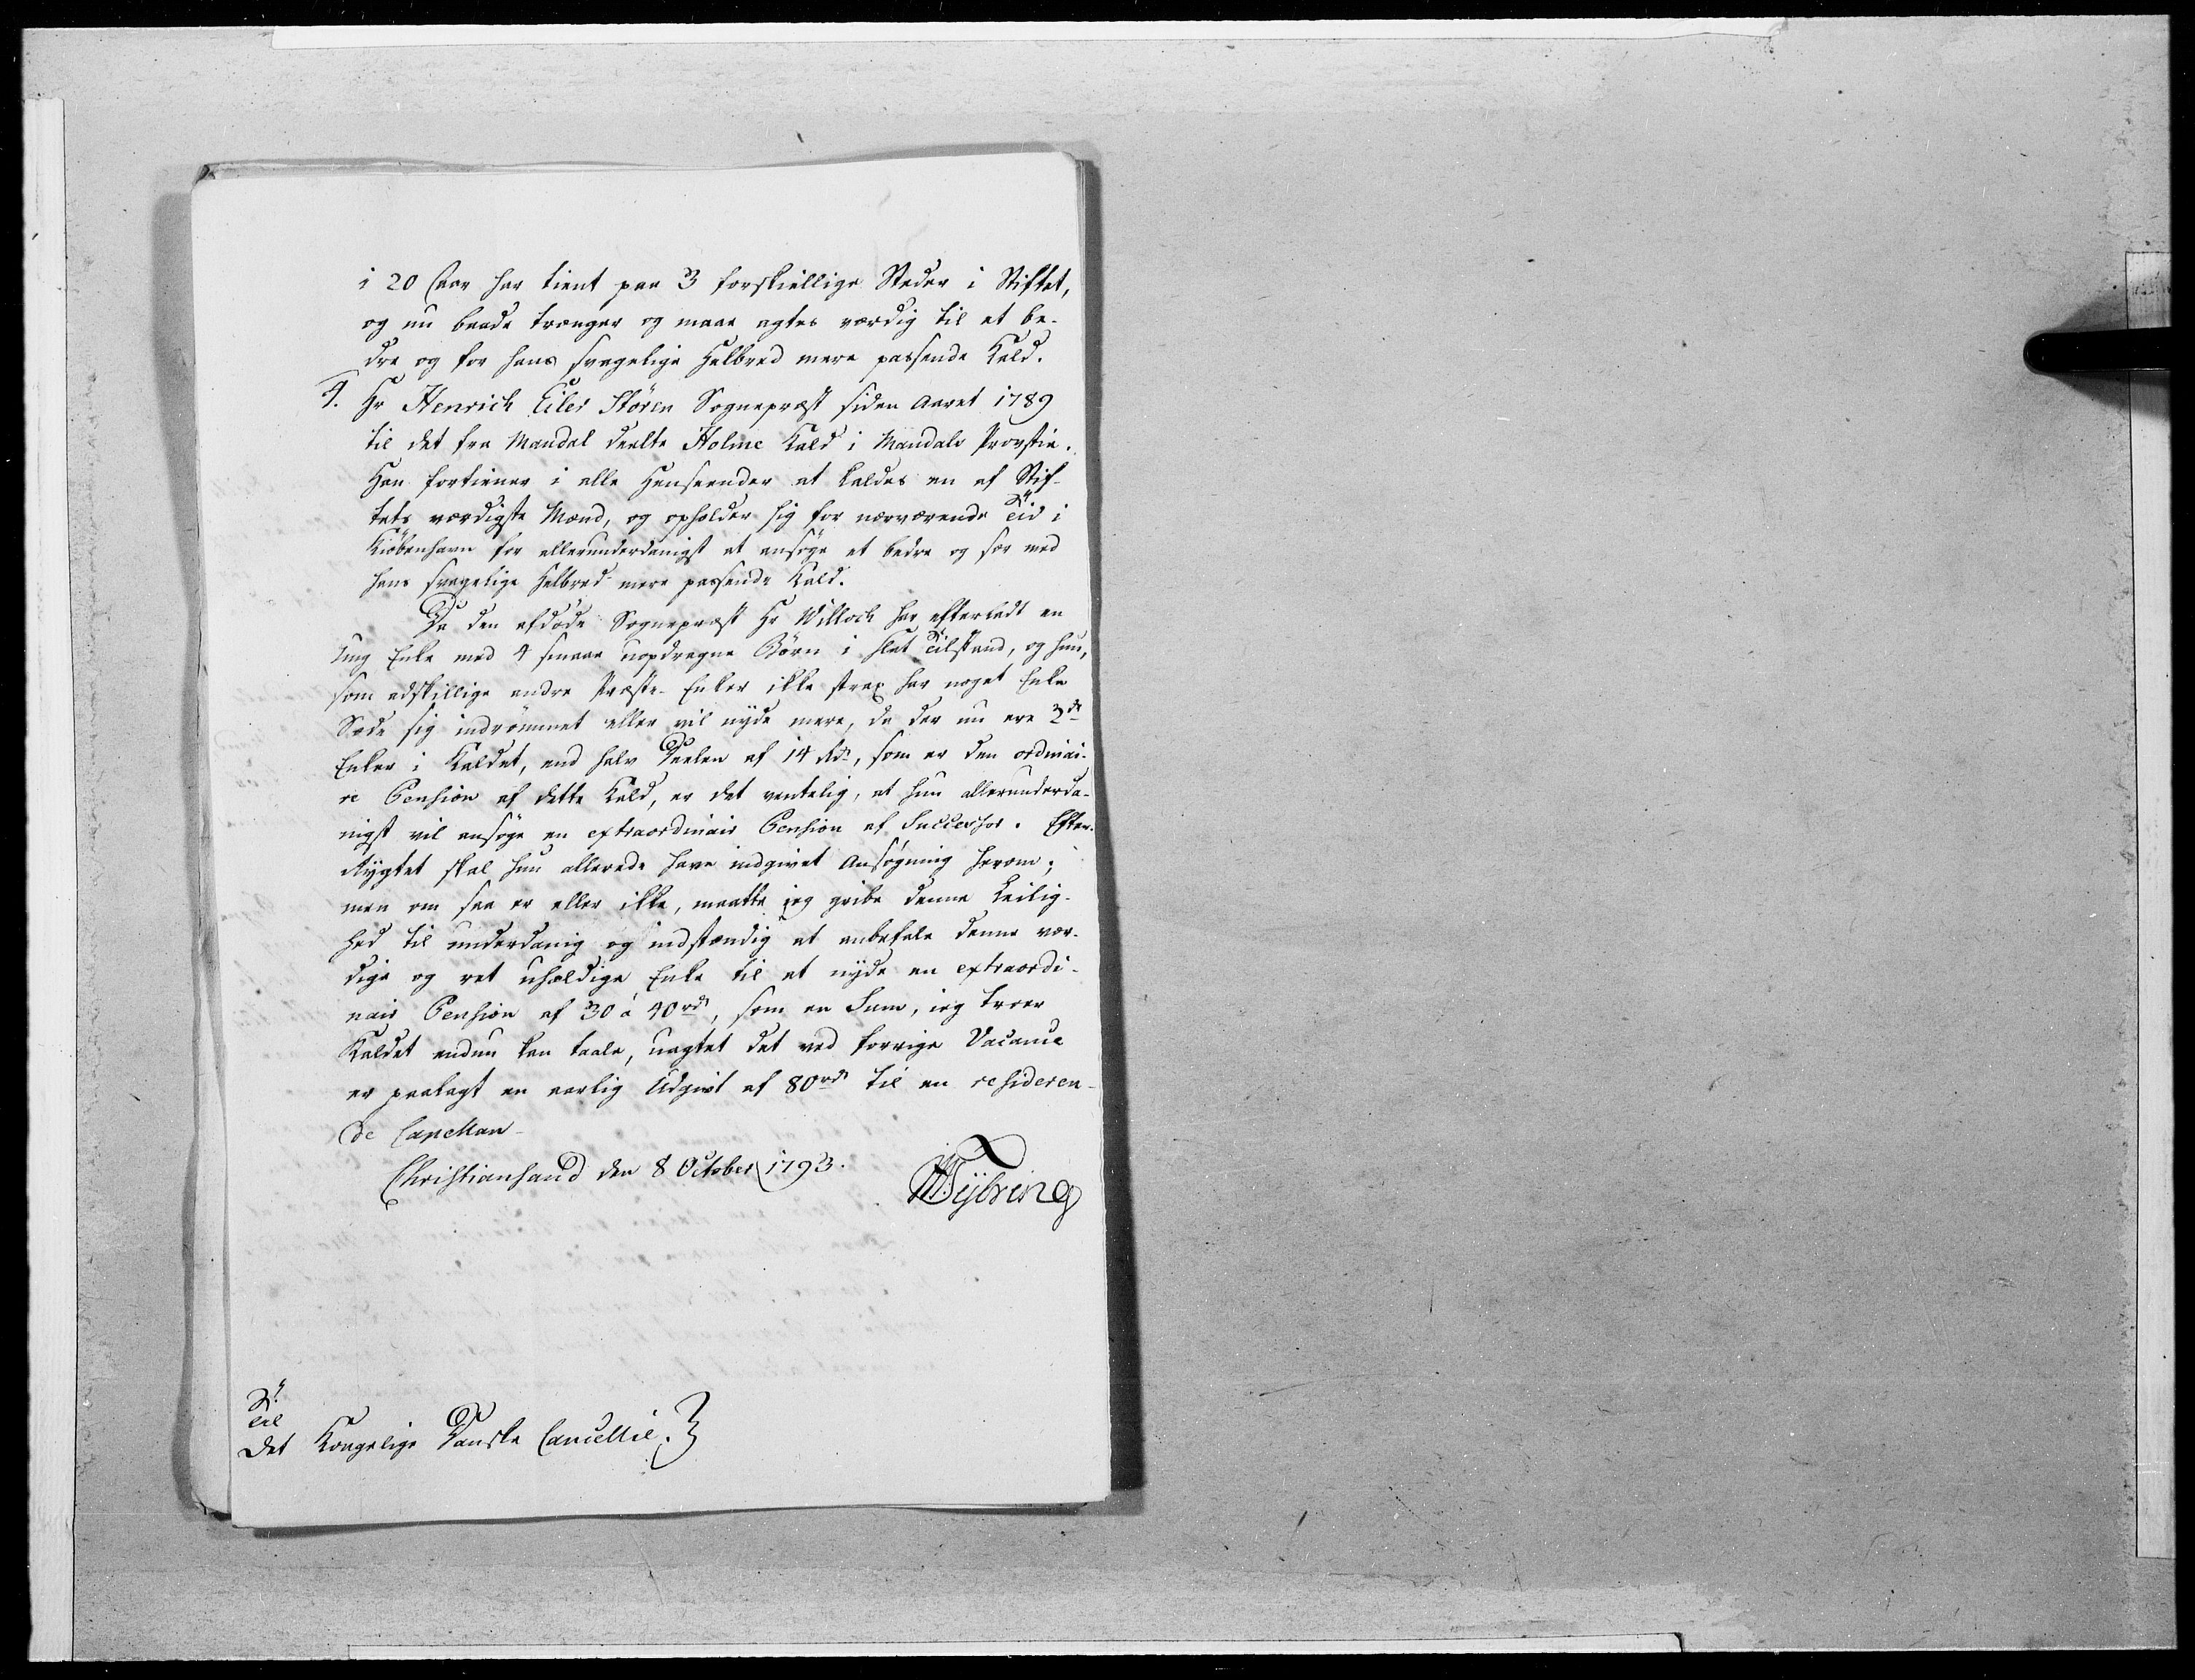 i 20 Aar har tient paa 3 forskiellige Steder i Stiftet,
og nu baade trænger og maae agtes værdig til et be-
dre og for hans svagelige Helbred mere passende Kald.
4. Hr Henrich Eiler Stören Sognepræst siden Aaret 1789
til det fra Mandal deelte Holme Kald i Mandals Provstie.
Han fortiener i alle Henseender at kaldes en af Stif-
tets værdigste Mænd, og opholder sig for nærværende Tid i
Kiöbenhavn for allerunderdanigst at ansøge et bedre og for med
hans svagelige Helbred mere passende Kald.
Da den afdöde Sognepræst Hr Willoch har efterladt en
Ung Enke med 4 smaae uopdragne Börn i slet Tilstand, og hun,
som adskillige andre Præste-Enker ikke strax har noget Enke
Sæde sig indrömmet eller vil nyde mere, da der nu ere 2de
Enker i Kaldet, end halv Deelen af 14 Rdr, som er den ordinai-
re Pension af dette Kald, er det ventelig, at hun allerunderda-
nigst vil ansøge en extraordinair Pension af Successor. Efter
Rygtet skal hun allerede have indgivet Ansøgning herom;
men om saa er eller ikke, maatte jeg gribe denne Leilig-
hed til underdanig og indstændig at anbefale denne vær-
dige og ret uheldige Enke til at nyde en extraordi-
nair Pension af 30 à 40rd, som en Sum, ieg troer
Kaldet endnu kan taale, uagtet det ved forrige Vacance
er paalagt en aarlig Udgivt af 80rd til en resideren-
de Capellan
Christiansand den 8 October 1793.
Tybring
Til
Det Kongelige Danske Cancellie.